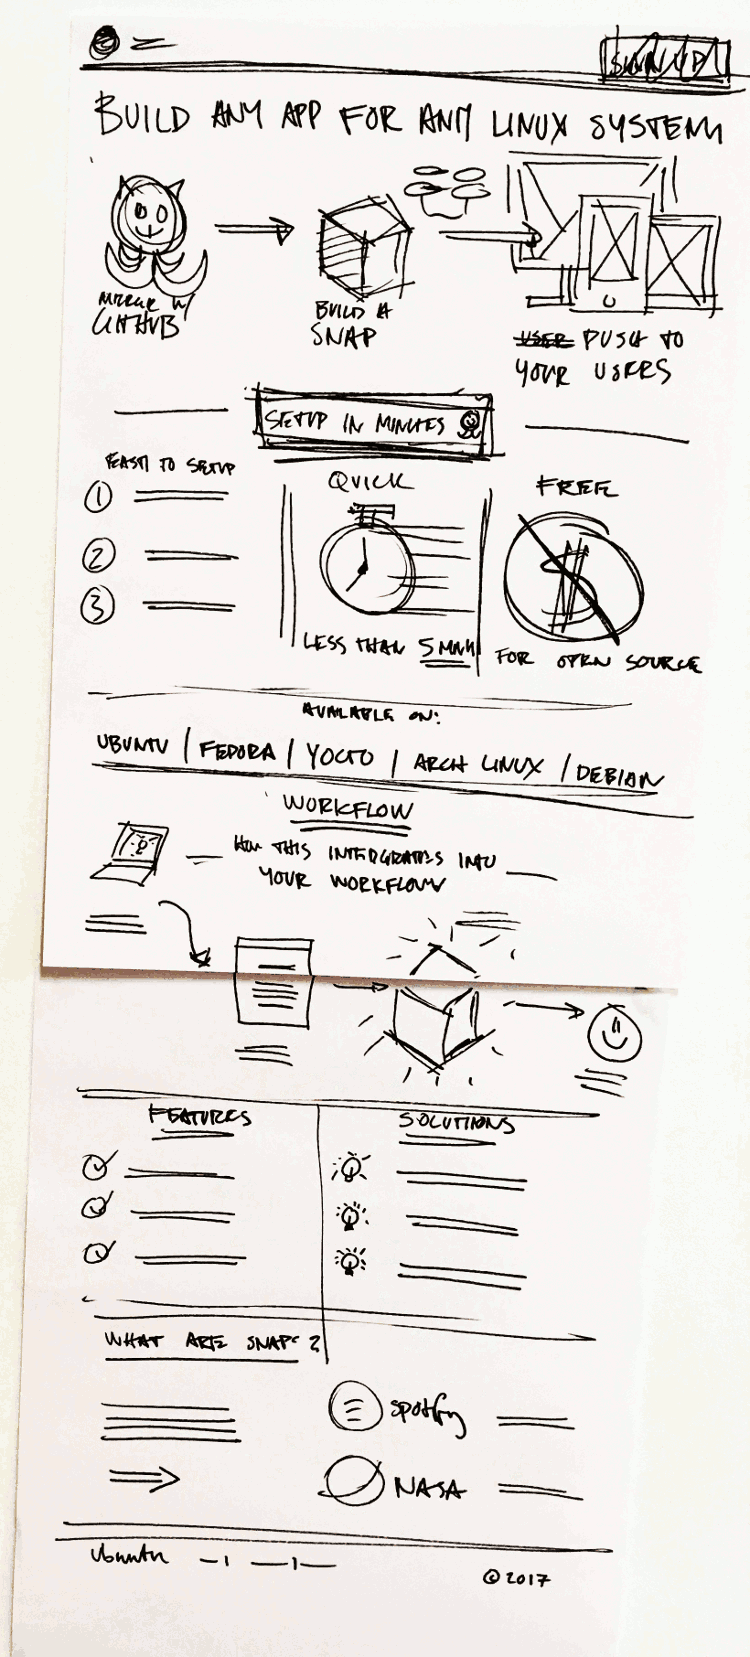 BUILD ANY APP FOR ANY LINUX SYSTEM
MIRROR W/
GITHUB
BUILD A
SNAP
USER PUSH TO
YOUR USERS
SETUP IN MINUTES
EASY TO SETUP
1
2
3
QUICK
LESS THAN 5 MIN
FREE
$
FOR OPEN SOURCE
AVAILABLE ON:
UBUNTU / FEDORA / YOCTO / ARCH LINUX / DEBIAN
WORKFLOW
HOW THIS INTERGRATES INTO
YOUR WORKFLOW
FEATURES
SOLUTIONS
WHAT ARE SNAPS?
Spotify
NASA
Ubuntu
© 2017